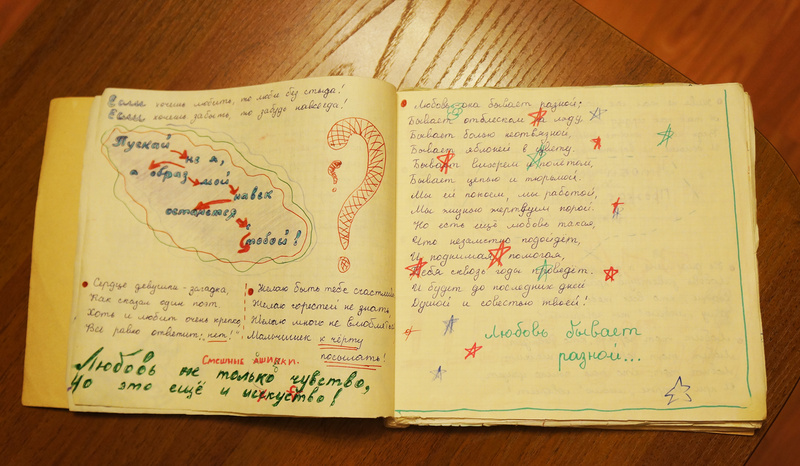 Если хочешь любить, то люби без стыда!
Если хочешь забыть, то забудь навсегда!
Пускай
не я,
а образ мой
навек
останется
с
тобой!
Сердце девушки - загадка,
Как сказал один поэт.
Хоть и любит очень крепко,
Всё равно ответит: „нет!"
Желаю быть тебе счастливой
Желаю горестей не знать
Желаю много не влюбляться
Мальчишек к чёрту
посылать!
Смешные ашипки.
Любовь не только чувство,
Но это ещё и искуство!
Любовь она бывает разной:
Бывает отблеском на льду.
Бывает болью неотвязной,
Бывает яблоней в цвету.
Бывает вихрем пролётом,
Бывает цепью и тюрьмой.
Мы ей поноем, мы работой,
Мы жизнью жертвуем порой.
Но есть ещё любовь такая,
Что незаметно подойдёт,
И поднимая, помогая,
Тебя сквозь годы проведёт.
И будет до последних дней
Душой и совестью твоей!
Любовь бывает
разной...